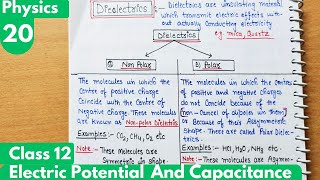 Physics
20
Dielectrics :- Dielectrics are insulating material
which transmit electric effects with-
actually conducting electricity
eg mica, Quartz
Dielectrics
① Non Polar
② Polar
The molecules in which the
Centre of positive charge
Coincide with the Centre of
Negative charge. These molecules
are known as Non-polar Dieletric
Examples:- CO2, CH4, O2 etc
Note :- These molecules are
Symmetric in shape.
The molecules in which the
Centre of positive and negative charges
do not Coincide because of the
(non- Cancel of dipoles in them)
or Because of their Assymmetric
Shape. There are called Polar Dielec-
trics.
Examples :- HCl, H2O, NH3 etc.
Note :- These molecules are Asymm-
Class 12
Electric Potential And Capacitance